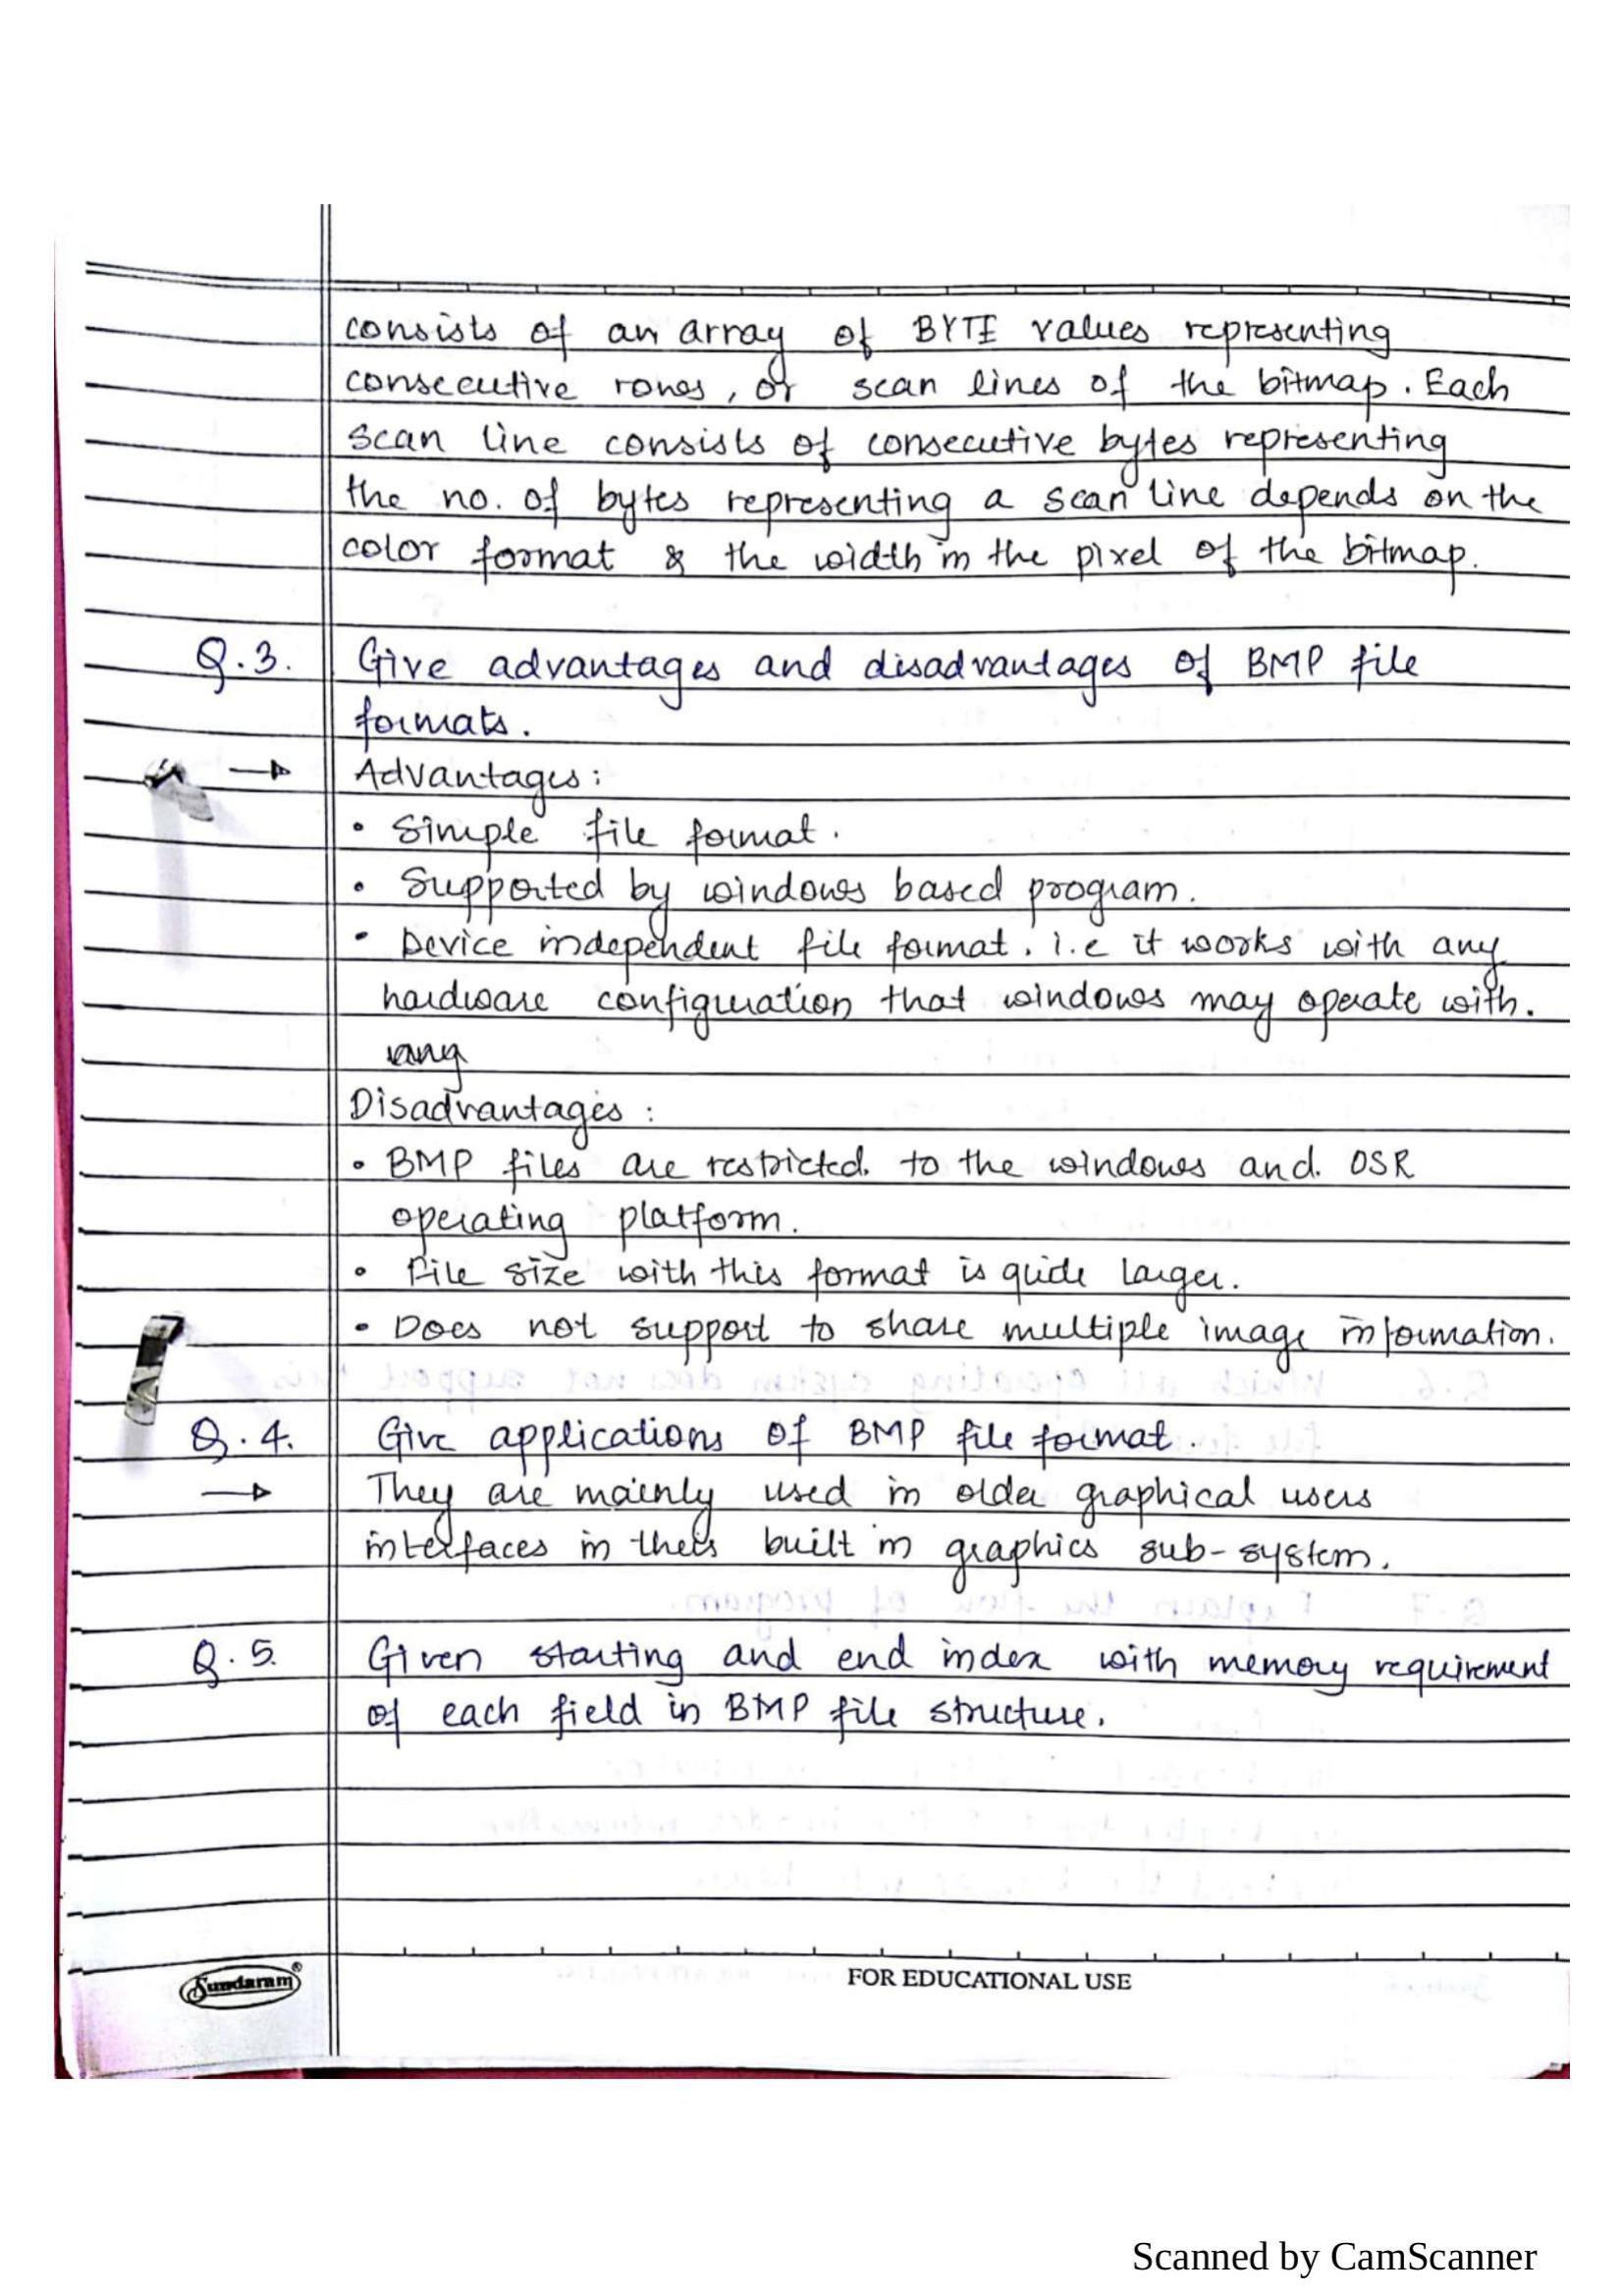 consists of an array of BYTE values representing
consecutive rows, or scan lines of the bitmap. Each
scan line consists of consecutive bytes representing
the no. of bytes representing a scan line depends on the
color format & the width in the pixel of the bitmap.
Q.3. Give advantages and disadvantages of BMP file
formats.
→ Advantages:
• Simple file format.
• Supported by windows based program.
• Device independent file format. i.e it works with any
hardware configuration that windows may operate with.
Disadvantages:
• BMP files are restricted to the windows and OSR
operating platform.
• File size with this format is quide larger.
• Does not support to share multiple image information.
Q.4. Give applications of BMP file format.
→ They are mainly used in older graphical users
interfaces in their built in graphics sub-system.
Q.5. Given starting and end index with memory requirement
of each field in BMP file structure.
Sundaram®
FOR EDUCATIONAL USE
Scanned by CamScanner